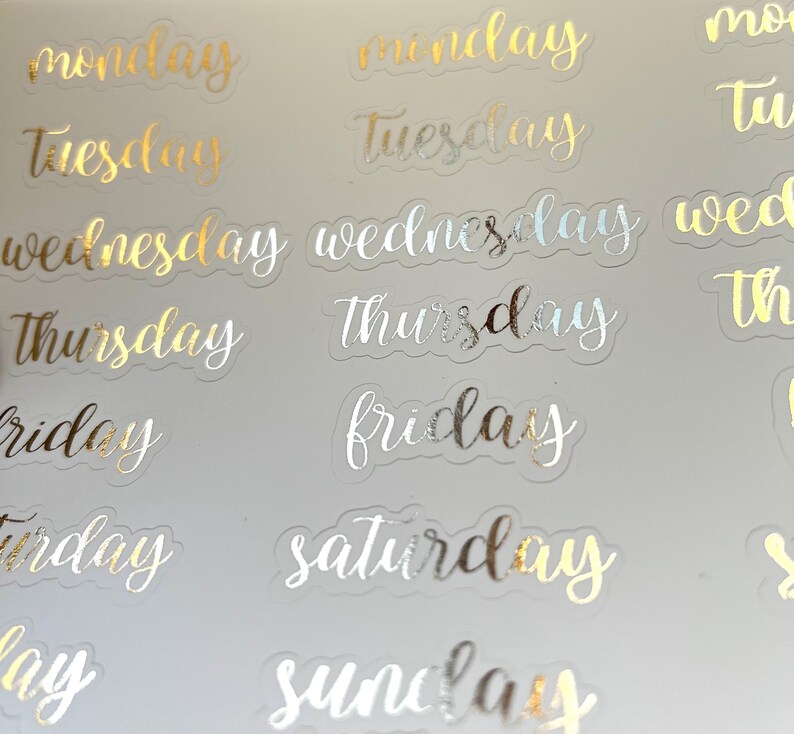 monday monday mo
tuesday tuesday tu
wednesday wednesday wed
thursday thursday th
friday friday
turday saturday s
day sunday